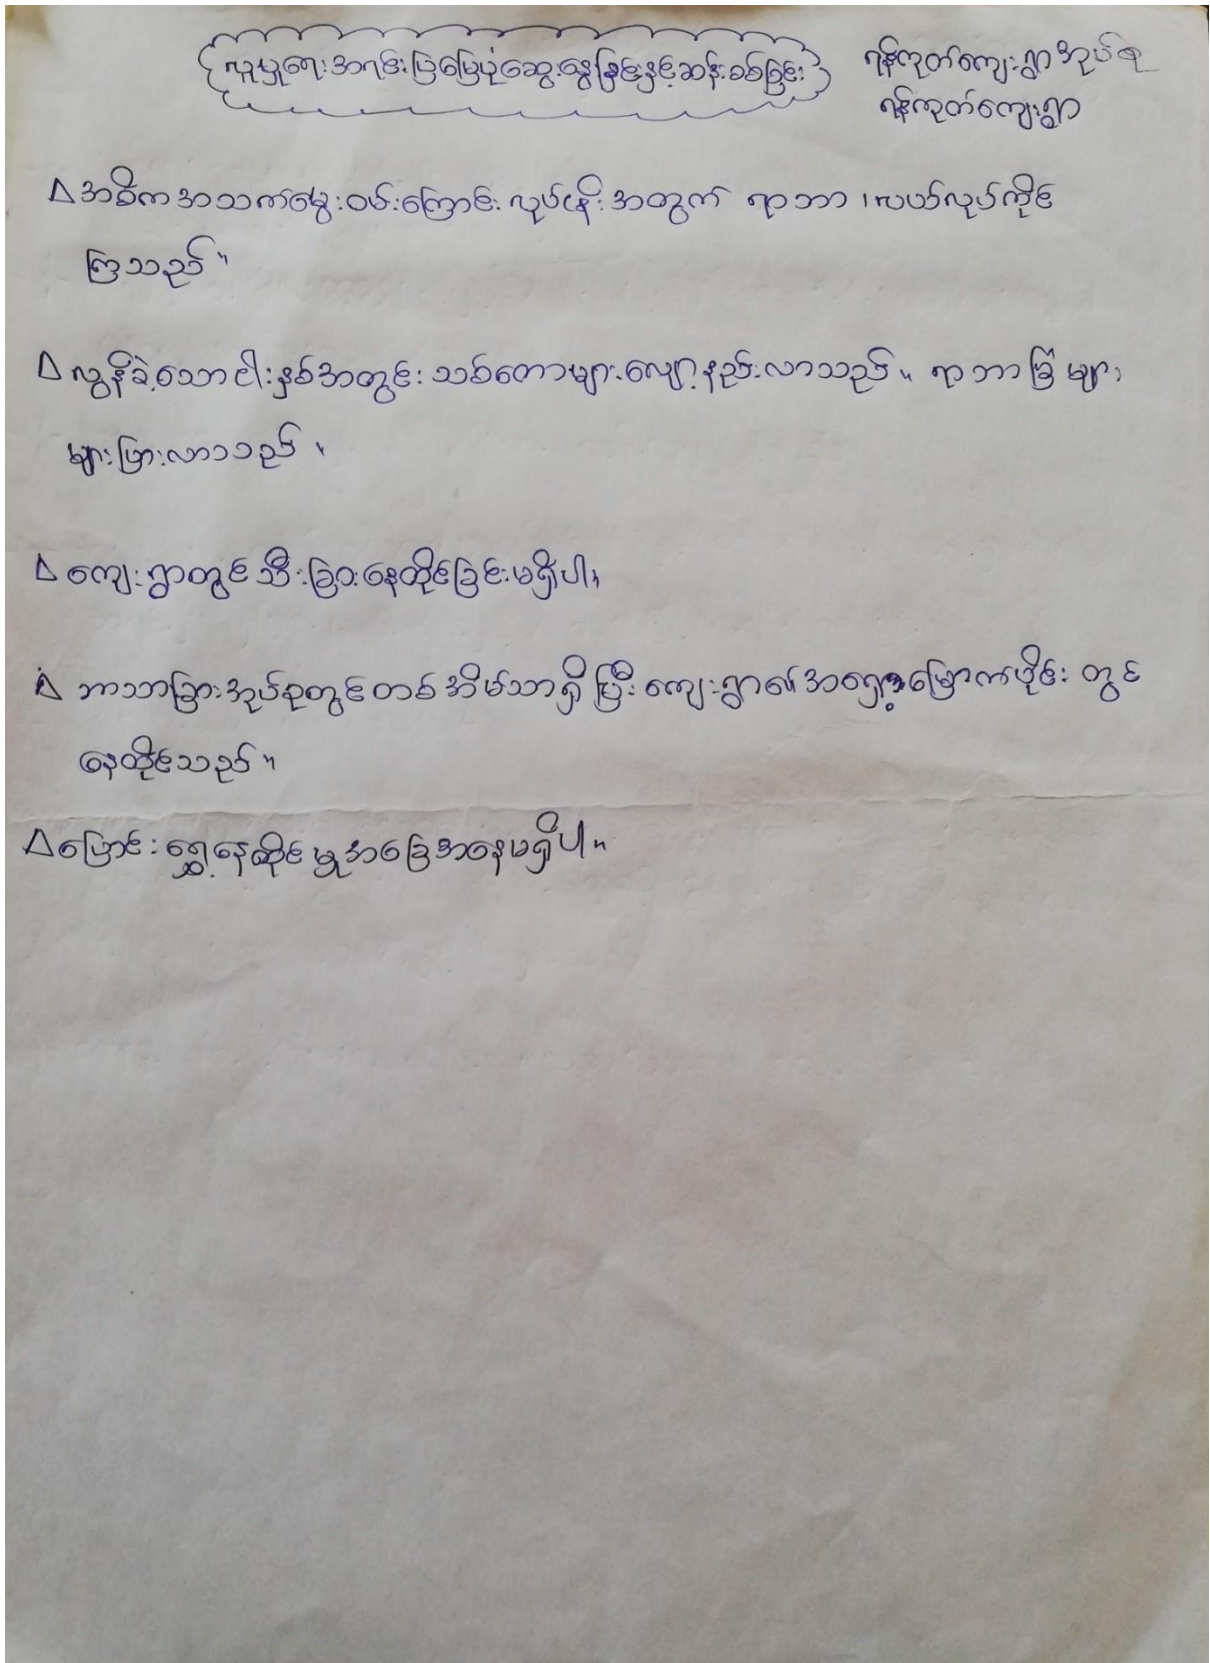 လူမှုရေးအရင်းပြမြေပုံဆွေးနွေးခြင်းနှင့်ဆန်းစစ်ခြင်း
ရန်ကုတ်ကျေးရွာအုပ်စု
ရန်ကုတ်ကျေးရွာ
△ အဓိကအသက်မွေးဝမ်းကြောင်းလုပ်ငန်းအတွက် ရာဘာ ၊ လယ်လုပ်ကိုင်
ကြသည် ။
△ လွန်ခဲ့သောငါးနှစ်အတွင်း သစ်တောများလျော့နည်းလာသည် ။ ရာဘာခြံများ
များပြားလာသည် ။
△ ကျေးရွာတွင်သီးခြားနေထိုင်ခြင်းမရှိပါ။
△ ဘာသာခြားအုပ်စုတွင်တစ်အိမ်သာရှိပြီးကျေးရွာ၏အရှေ့မြောက်ပိုင်း တွင်
နေထိုင်သည် ။
△ ပြောင်းရွှေ့နေထိုင်မှုအခြေအနေမရှိပါ ။